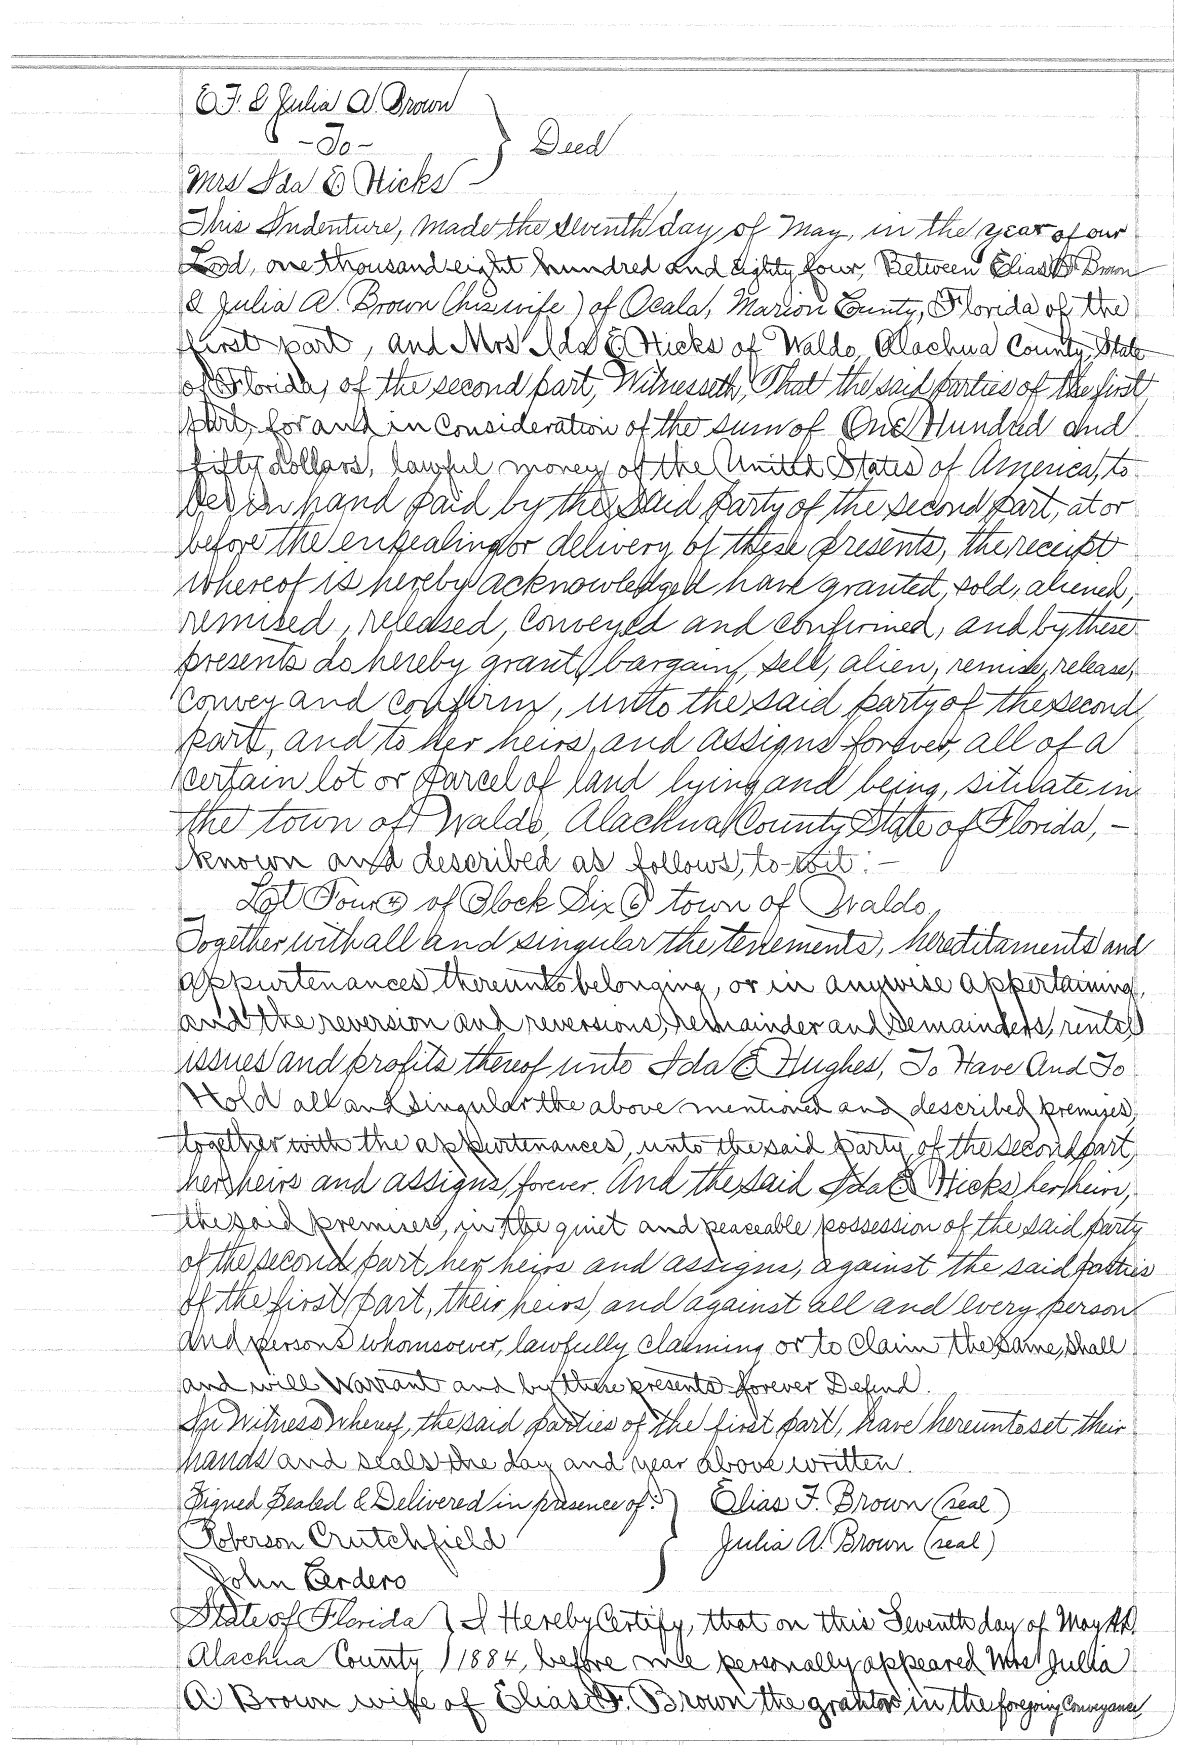 E. F. & Julia A. Brown
-To- } Deed
Mrs Ida E Hicks
This Indenture, made the seventh day of May, in the year of our
Lord, one thousand eight hundred and eighty four, Between Elias F. Brown
& Julia A. Brown (his wife) of Ocala, Marion County, Florida of the
first part, and Mrs Ida E Hicks of Waldo, Alachua County, State
of Florida, of the second part, Witnesseth, That the said parties of the first
part, for and in consideration of the sum of One Hundred and
fifty dollars, lawful money of the United States of America, to
in hand paid by the said party of the second part, at or
before the ensealing or delivery of these presents, the receipt
whereof is hereby acknowledged have granted, sold, aliened,
remised, released, conveyed and confirmed, and by these
presents do hereby grant, bargain, sell, alien, remise, release,
convey and confirm, unto the said party of the second
part, and to her heirs, and assigns forever, all of a
certain lot or parcel of land lying and being, situate in
the town of Waldo, Alachua County State of Florida, -
known and described as follows, to-wit: -
Lot Four (4) of Block Six (6) town of Waldo,
Together with all and singular the tenements, hereditaments and
appurtenances thereunto belonging, or in anywise appertaining,
and the reversion and reversions, remainder and remainders, rents,
issues and profits thereof unto Ida E Hughes, To Have And To
Hold all and singular the above mentioned and described premises,
together with the appurtenances, unto the said party of the second part,
her heirs and assigns, forever. And the said Ida E Hicks, her heirs,
the said premises, in the quiet and peaceable possession of the said party
of the second part her heirs and assigns, against the said parties
of the first part, their heirs, and against all and every person
and persons whomsoever, lawfully claiming or to claim the same, shall
and will Warrant and by these presents forever Defend.
In Witness Whereof, the said parties of the first part, have hereunto set their
hands and seals the day and year above written.
Signed Sealed & Delivered in presence of: } Elias F. Brown (seal)
Roberson Crutchfield Julia A. Brown (seal)
John Cerdero
State of Florida } I Hereby Certify, that on this Seventh day of May A.D.
Alachua County } 1884, before me personally appeared Mrs Julia
A Brown wife of Elias F. Brown the grantor in the foregoing Conveyance